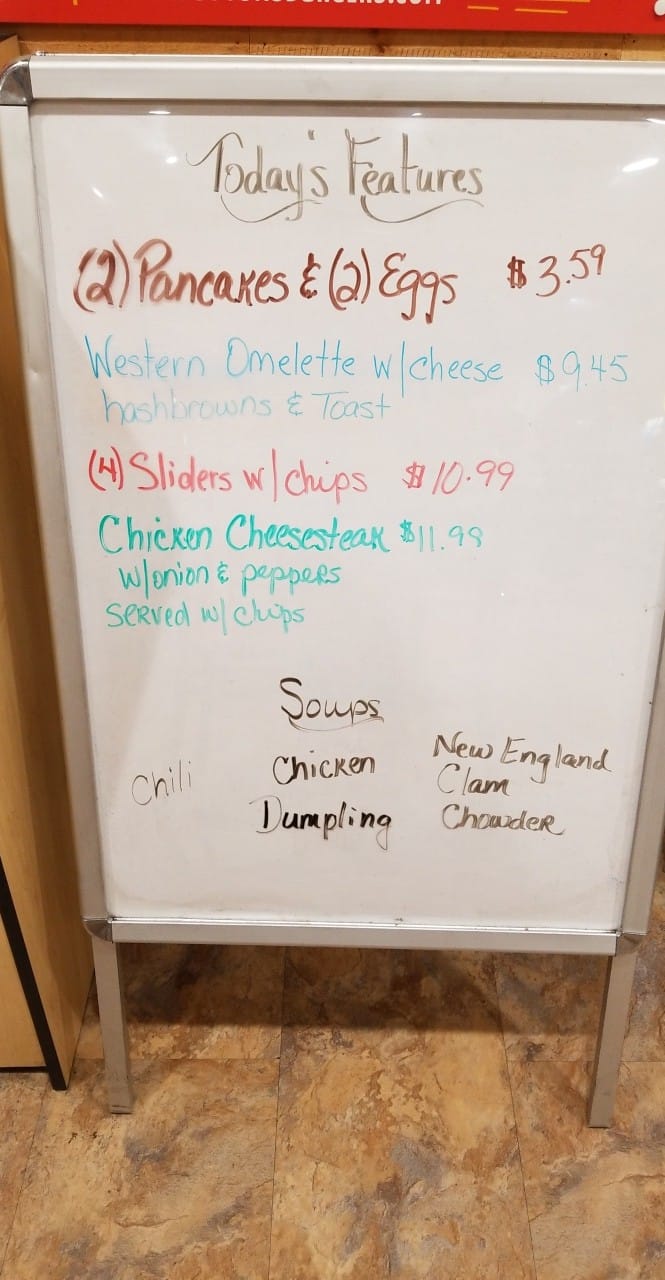 Today's Features
(2) Pancakes & (2) Eggs $3.59
Western Omelette w/cheese $9.45
hashbrowns & Toast
(4) Sliders w/chips $10.99
Chicken Cheesesteak $11.98
w/onion & peppers
served w/ chips
Soups
Chili
Chicken
Dumpling
New England
Clam
Chowder